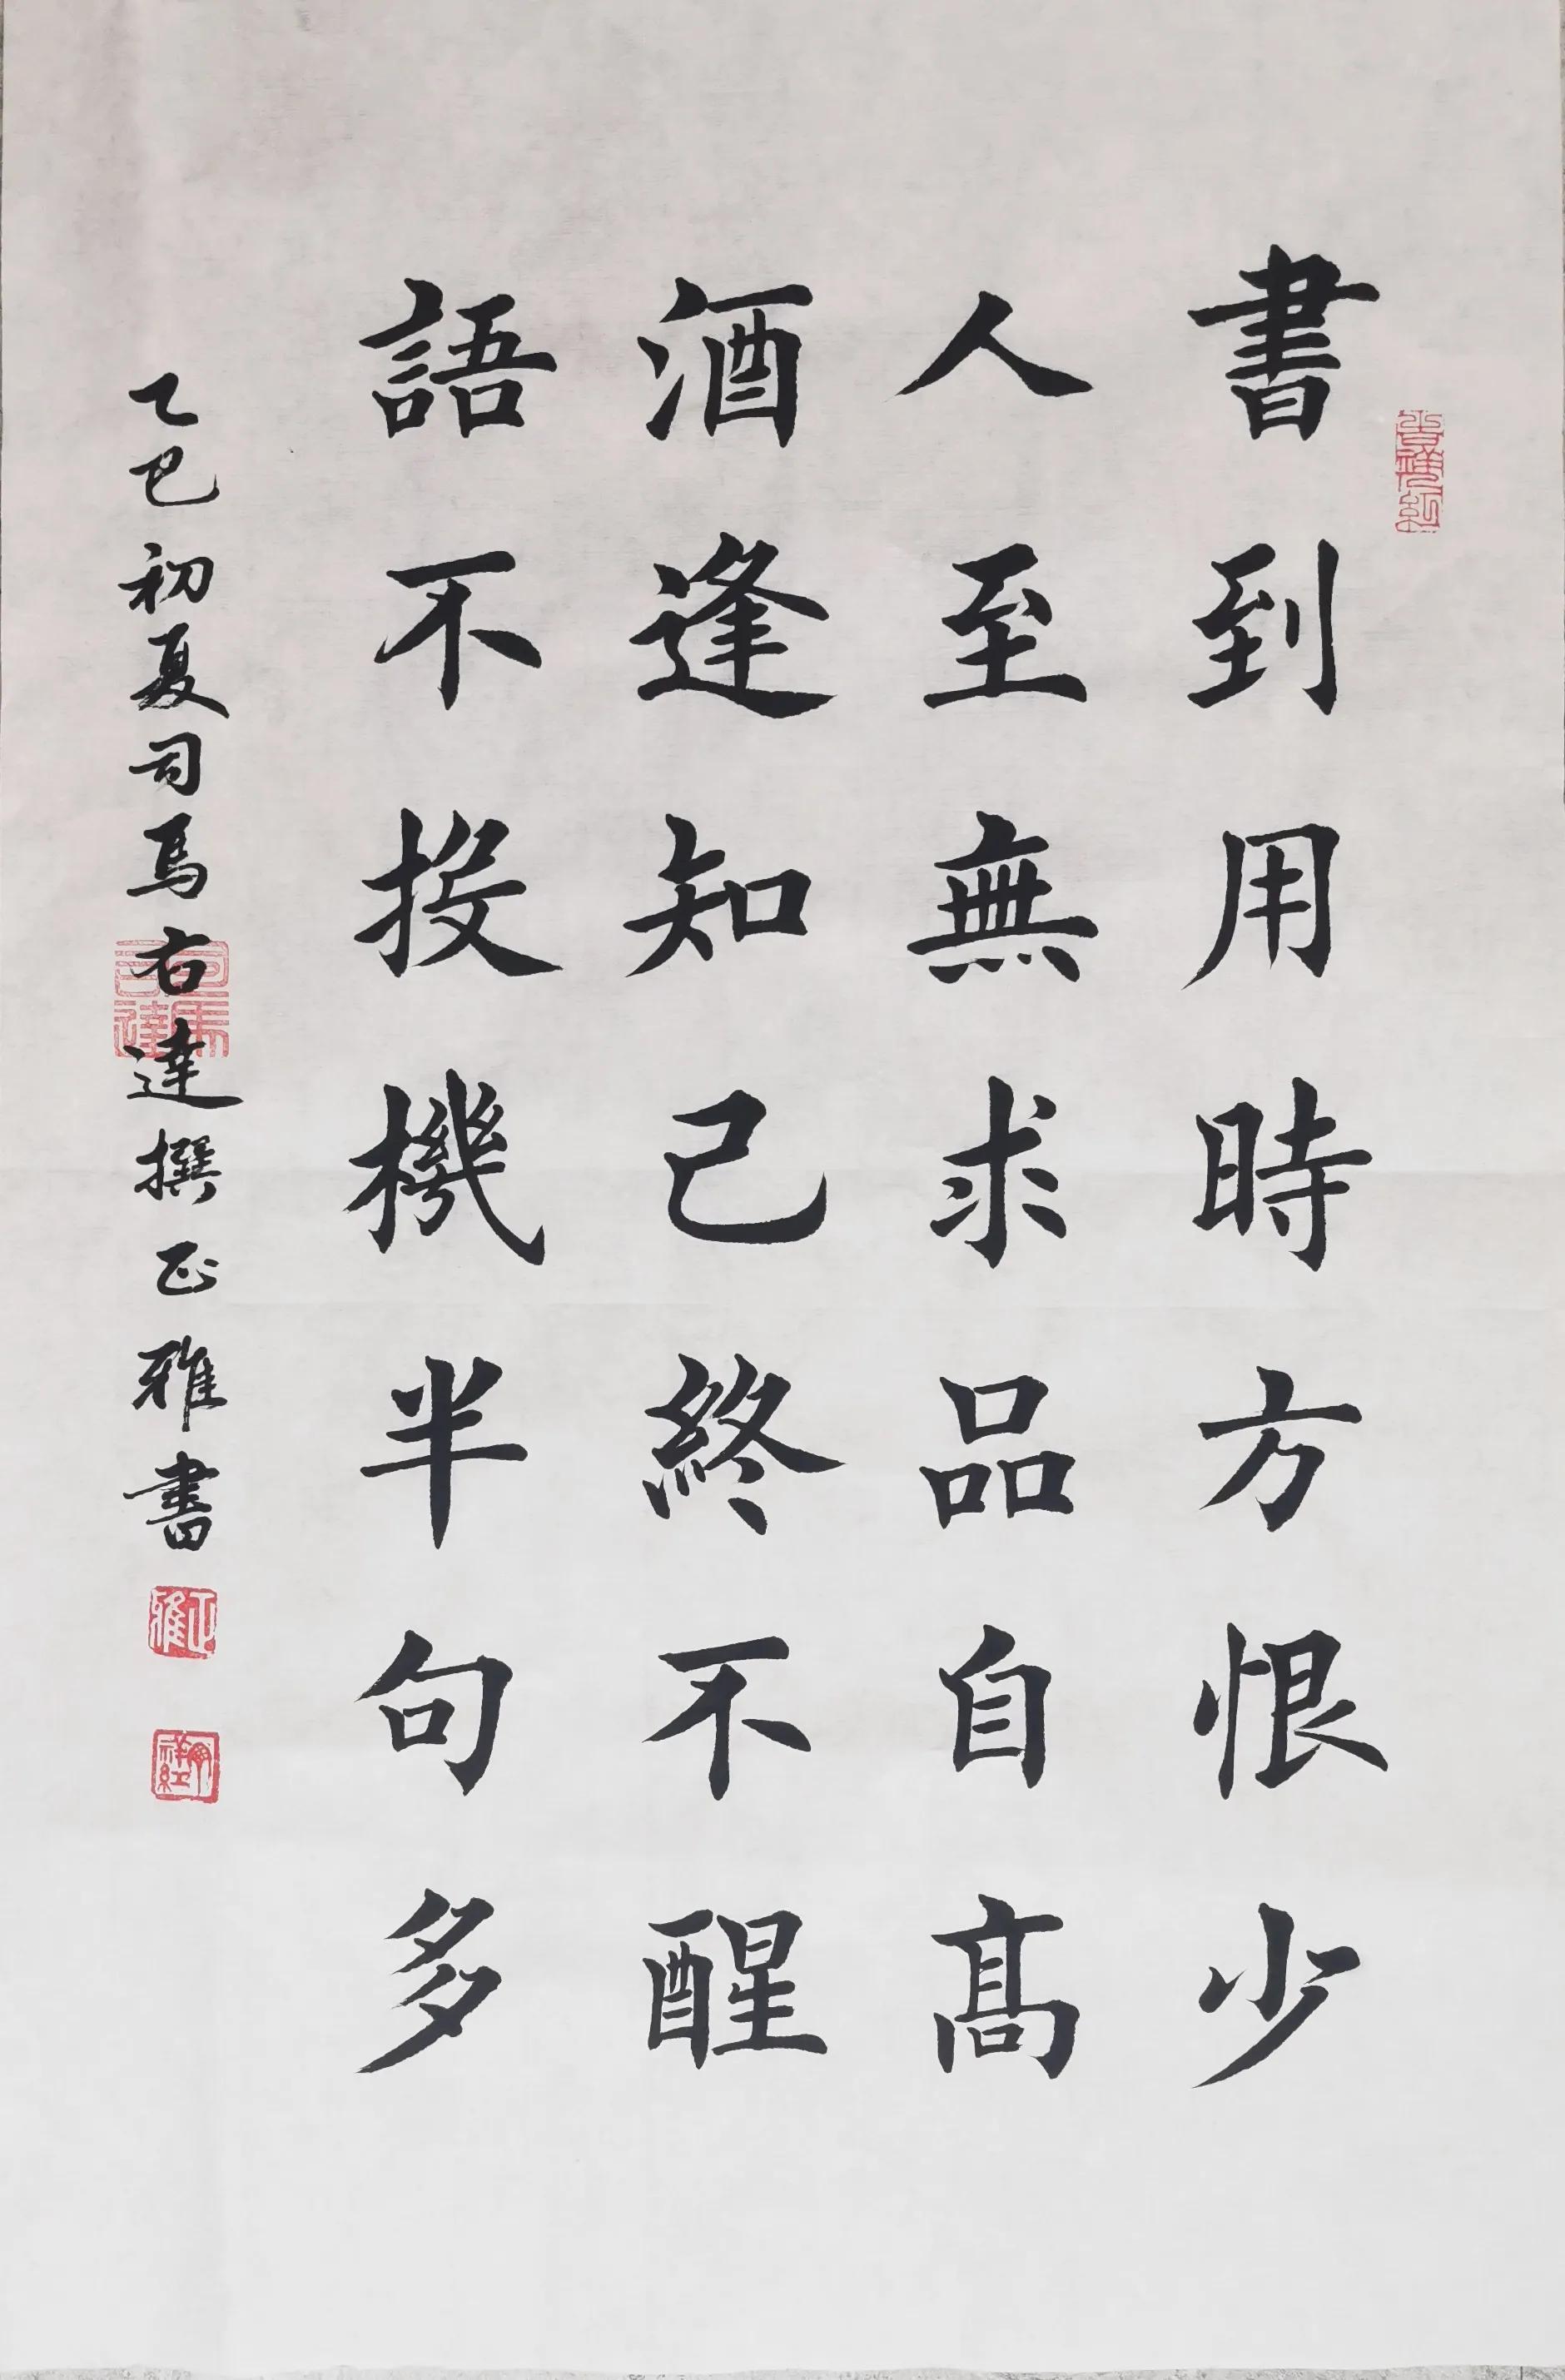 書到用時方恨少
人至無求品自高
酒逢知己終不醒
語不投機半句多
乙巳初夏司馬右達撰正雅書
司馬右達
正雅